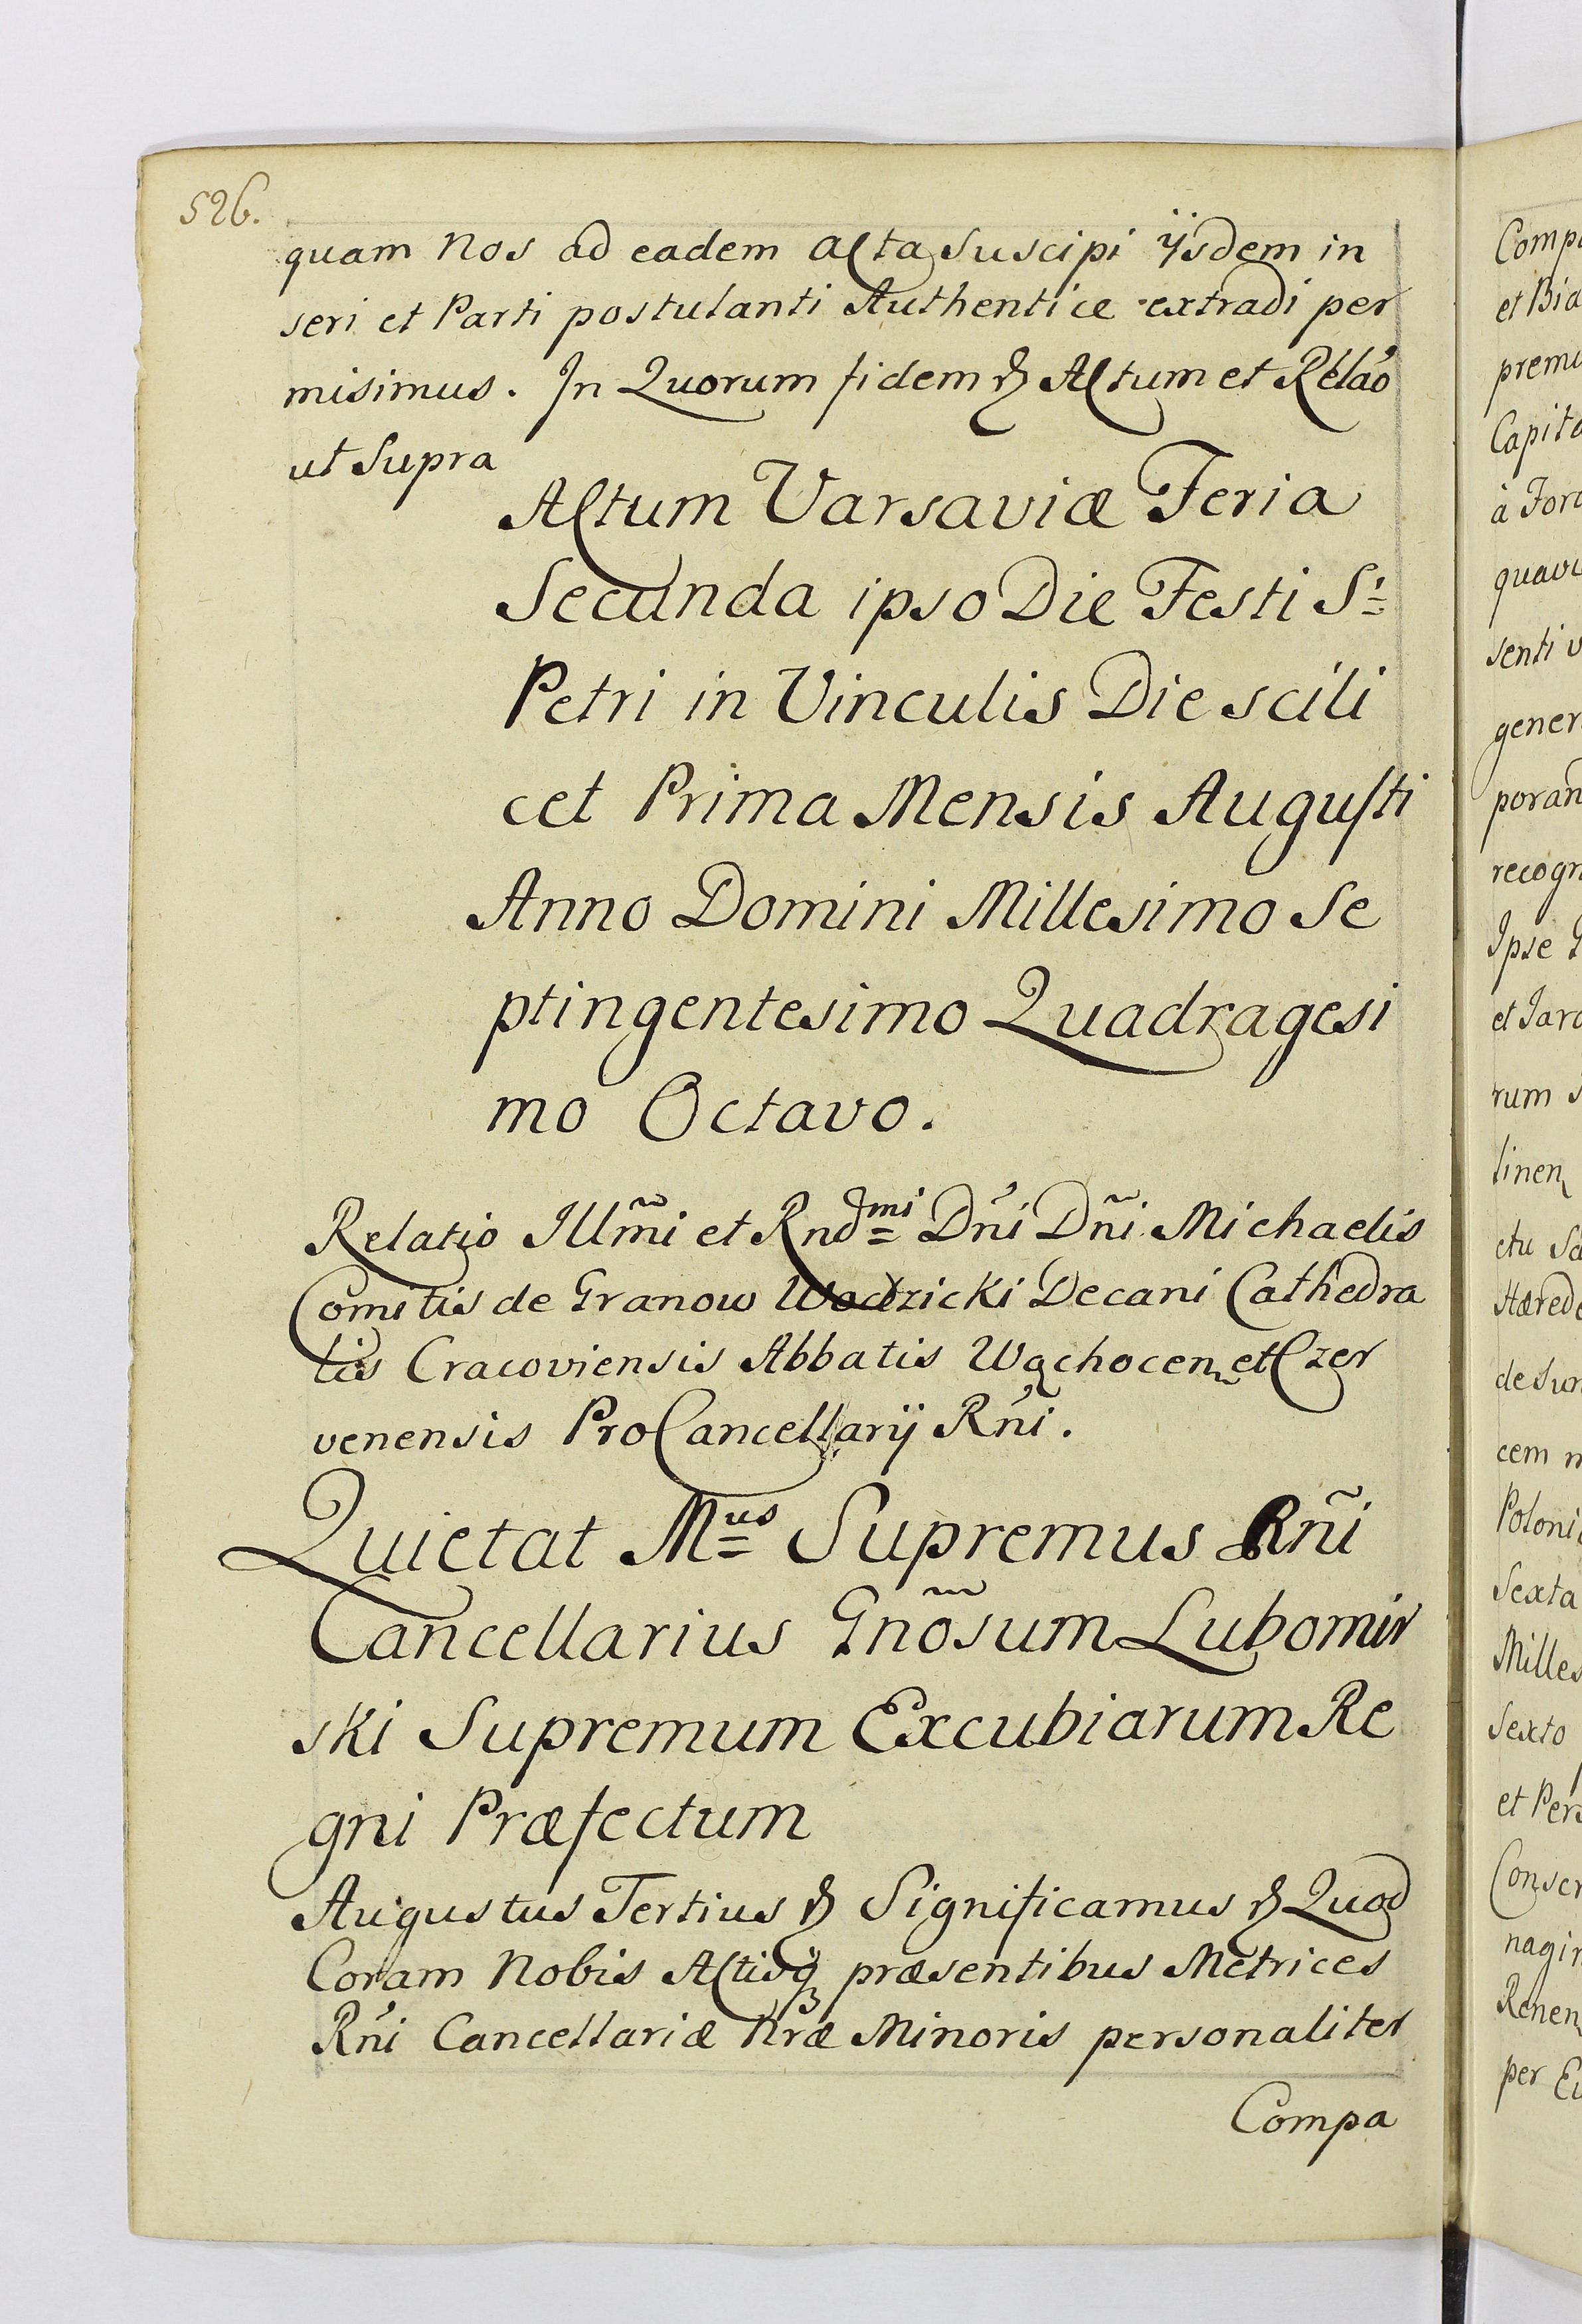 526.
quam Nos ad eadem Acta suscipi ÿsdem in
seri et Parti postulanti Authentice extradi per
misimus. In Quorum fidem &c Actum et Relaõ
ut Supra
Actum Varsaviæ Feria
Secunda ipso Die Festi Sⁱ
Petri in Vinculis Die scili
cet Prima Mensis Augusti
Anno Domini Millesimo Se
ptingentesimo Quadragesi
mo Octavo.
Relatio Illm̃i et Rndᵐⁱ Dñi Dñi Michaelis
Comitis de Granow Wodzicki Decani Cathedra
lis Cracoviensis Abbatis Wąchocen. et Czer
venensis ProCancellarij Rñi.
Quietat Mᵘˢ Supremus Rñi
Cancellarius Gnõsum Lubomir
ski Supremum Excubiarum Re
gni Præfectum
Augustus Tertius &c Significamus &c Quod
Coram Nobis Actisq; præsentibus Metrices
Rñi Cancellariæ Nræ Minoris personaliter
Compa
Comp
et Bia
premu
Capita
à
quavi
senti
gener
poran
recogn
Ipse
et Jaro
rum
tinen
ctu
Hærede
de
cem
Poloni
Sexta
Milles
Sexto
et Pers
Conser
nagin
Renen
per